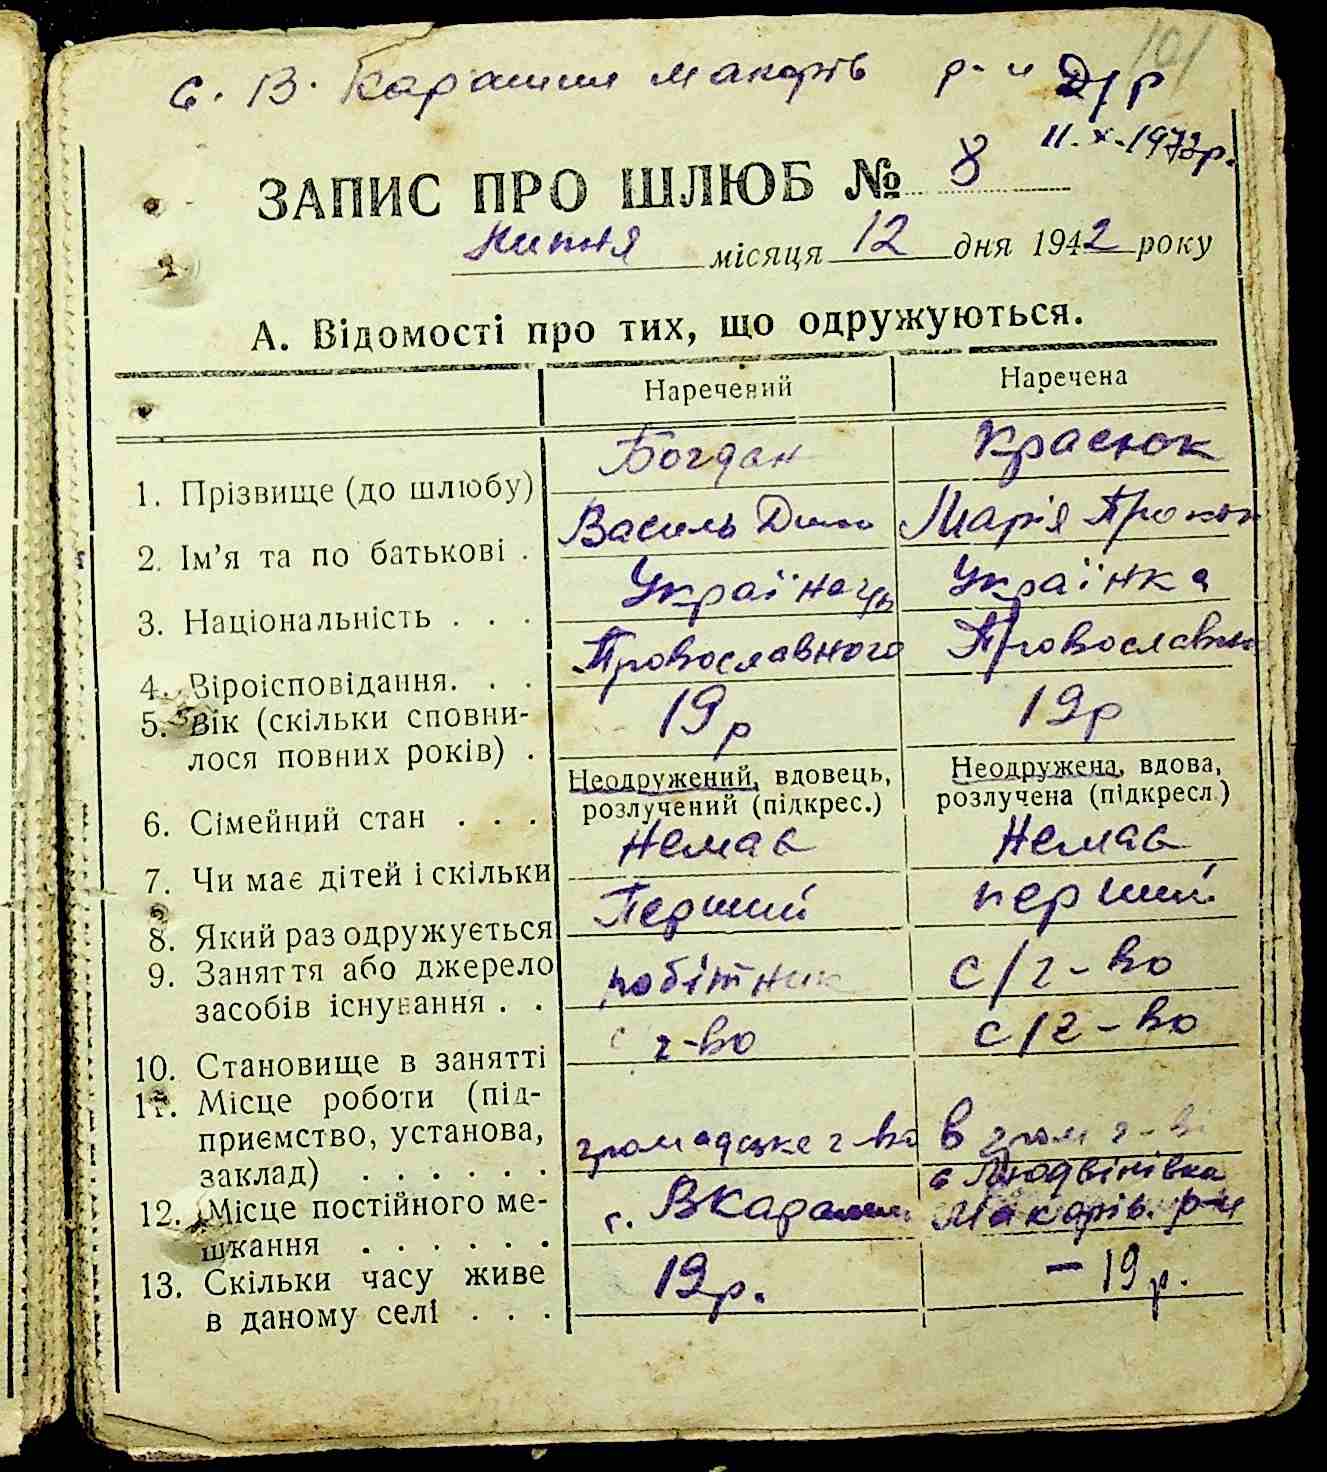 101
с. В. Карашин Макарів р-н Д/р
11.X.1973р.
ЗАПИС ПРО ШЛЮБ № 8
Липня місяця 12 дня 1942 року
А. Відомості про тих, що одружуються.
Наречений Наречена
1. Прізвище (до шлюбу) Богдан Красюк
2. Ім'я та по батькові . Василь Дим Марія Прокоп
3. Національність . . . Українець Українка
4. Віроісповідання. . . Провославного Провославн
5. Вік (скільки сповни-
лося повних років) . 19р 19р
6. Сімейний стан . . . Неодружений, вдовець, розлучений (підкрес.) Неодружена, вдова, розлучена (підкресл.)
7. Чи має дітей і скільки Немає Немає
8. Який раз одружується Перший перший
9. Заняття або джерело
засобів існування . . робітник с/г-во
10. Становище в занятті с г-во с/г-во
11. Місце роботи (під-
приємство, установа,
заклад) . . . . . . громадське г-во в гром г-ві
12. Місце постійного ме-
шкання . . . . . . с. ВКарашин с Людвінівка Макарів. р-н
13. Скільки часу живе
в даному селі . . . 19р. – 19р.